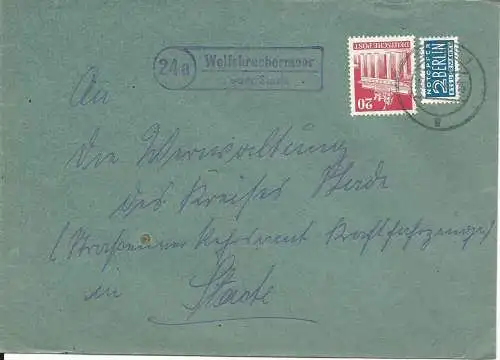 24a
Wolfsbruchermoor
über Stade
DEUTSCHE POST
20
NOTOPFER
2 BERLIN
STEUERMARKE
An
Die Verwaltung
des Kreises Stade
(Straßenverkehrsamt Kraftfahrzeuge)
in Stade